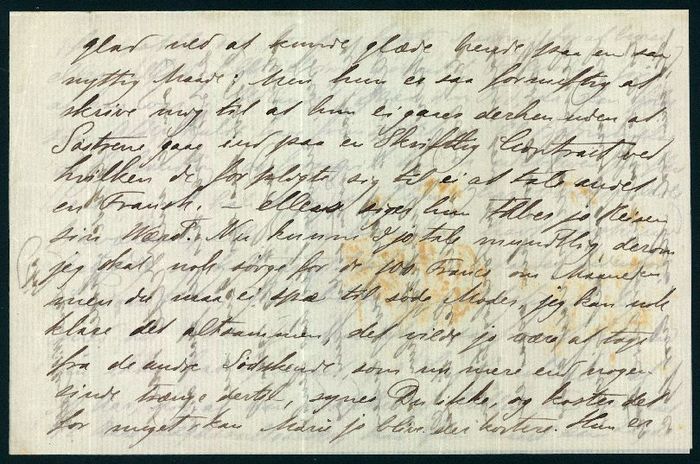 glad ved at kunde glæde hende paa en saa
nyttig Maade; Men hun er saa fornuftig at
skrive mig til at hun ei gaaer derhen uden at
Søstrene gaae ind paa en Skriftlig Contract ved
hvilken de forpligte sig til ei at tale andet
en Fransk. — ellers siger hun tabes jo Reisen
sin Værd. Nu kunne I jo tale mundtlig derom
jeg skal nok sørge for de 100 Francs om Maaneden
men du maa ei til søde Moder, jeg kan nok
klare det altsammen, det vilde jo være at tage
fra de andre Sødskende som nu mere end nogen
sinde trænge dertil, synes Du ikke, og koster det
for meget kan Marie jo blive der kortere. Hun er